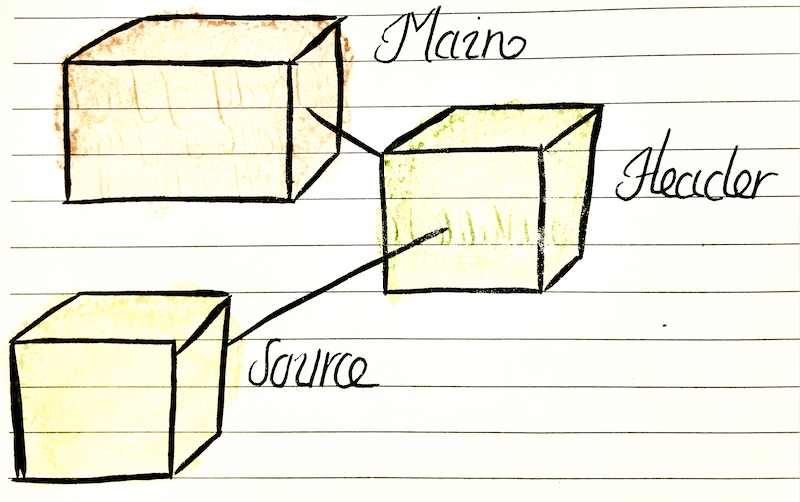 Main
Header
Source